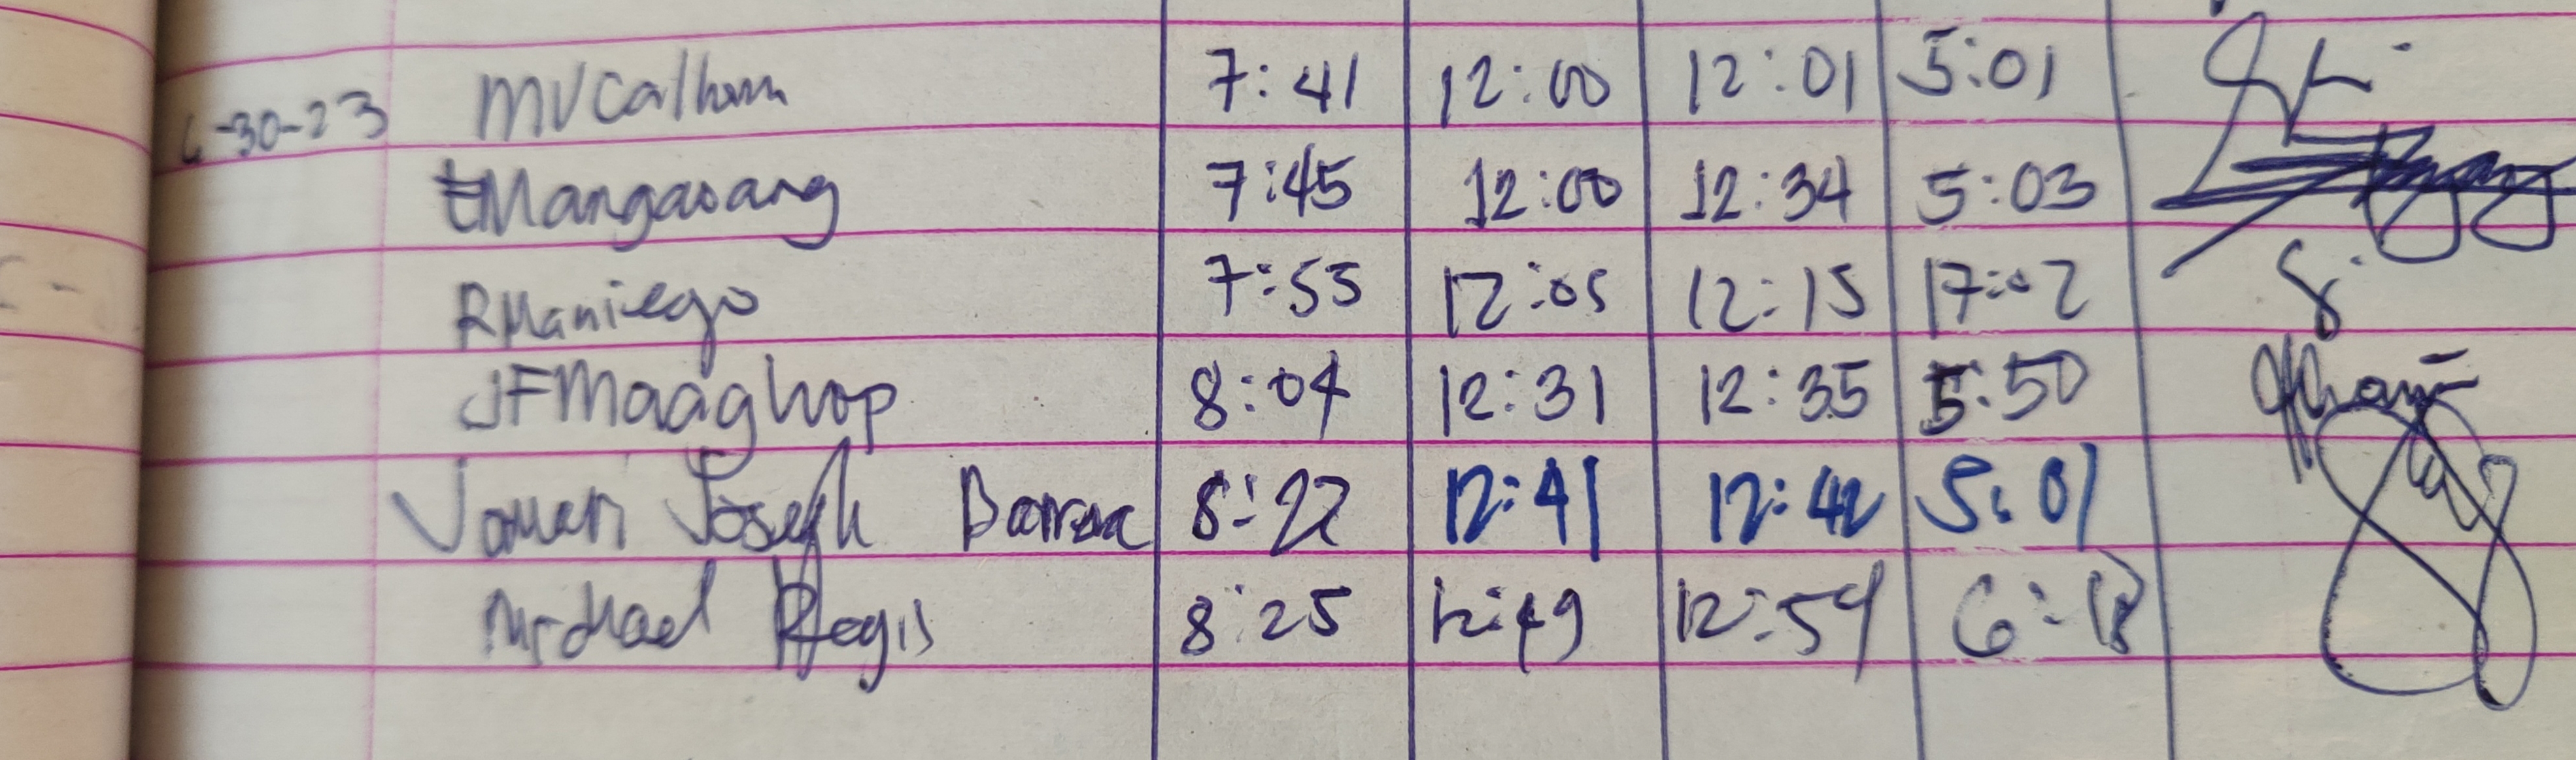 6-30-23 MVCalhum 7:41 12:00 12:01 5:01
EMangaoang 7:45 12:00 12:34 5:03
RManiego 7:55 12:05 12:15 17:02
JFMaaghop 8:04 12:31 12:35 5:50
Joseph 8:22 12:41 12:42 5:01
Michael Regis 8:25 12:49 12:54